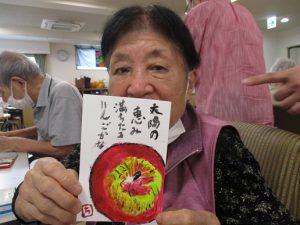 太陽の
恵み
満ちたる
りんごかな